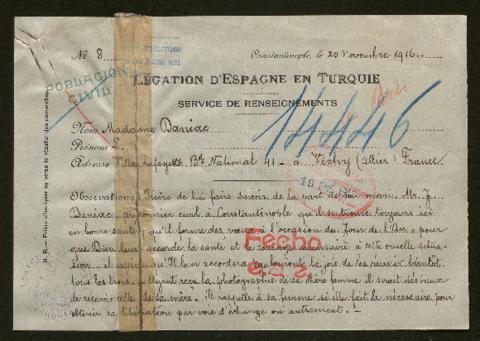 № 8
Constantinople, le 20 Novembre 1916
POBLACION
CIVIL
LÉGATION D'ESPAGNE EN TURQUIE
SERVICE DE RENSEIGNEMENTS
14446
Nom Madame Baniac
Prénom L.
Adresse Villa Lafayette Bd National 41 - à Vichy (Allier) France
Observations: Prière de lui faire savoir de la part de son mari Mr. J.
Baniac, prisonnier civil à Constantinople qu'il se trouve toujours ici
en bonne santé, qu'il forme des vœux à l'occasion du Jour de l'An pour
que Dieu leur accorde la santé et le courage nécessaire à cette cruelle situa-
tion - il espère qu'Il leur accordera également la joie de les réunir bientôt
tous les trois. - Ayant reçu la photographie de sa chère femme il serait désireux
de recevoir celle de sa mère. - Il rappelle à sa femme si elle fait le nécessaire pour
obtenir sa libération par voie d'échange ou autrement. -
Fecho